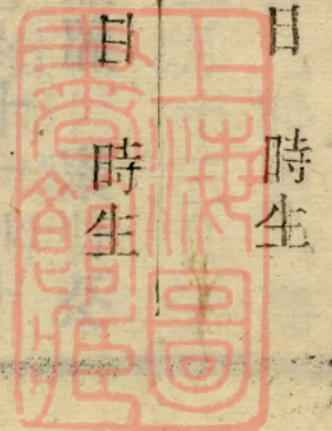 日　時生
日　時生
上海圖
書館藏